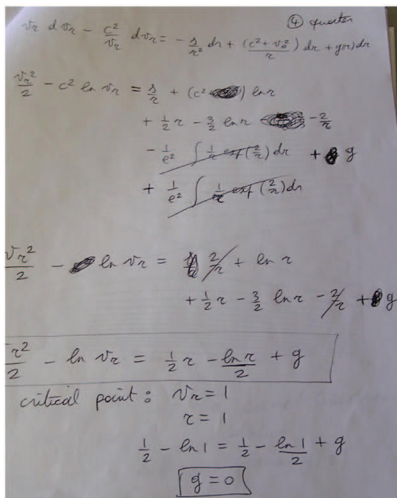 ④ quarter
vr dvr - c²/vr dvr = - s/r² dr + (c² + vφ²)/r dr + g(r)dr
vr²/2 - c² ln vr = s/r + (c² ) ln r
+ 1/2 r - 3/2 ln r - 2/r
- 1/e² ∫ 1/r exp(2/r) dr + g
+ 1/e² ∫ 1/r exp(2/r) dr
vr²/2 - ln vr = 2/r + ln r
+ 1/2 r - 3/2 ln r - 2/r + g
vr²/2 - ln vr = 1/2 r - ln r/2 + g
critical point: vr = 1
r = 1
1/2 - ln 1 = 1/2 - ln 1/2 + g
g = 0